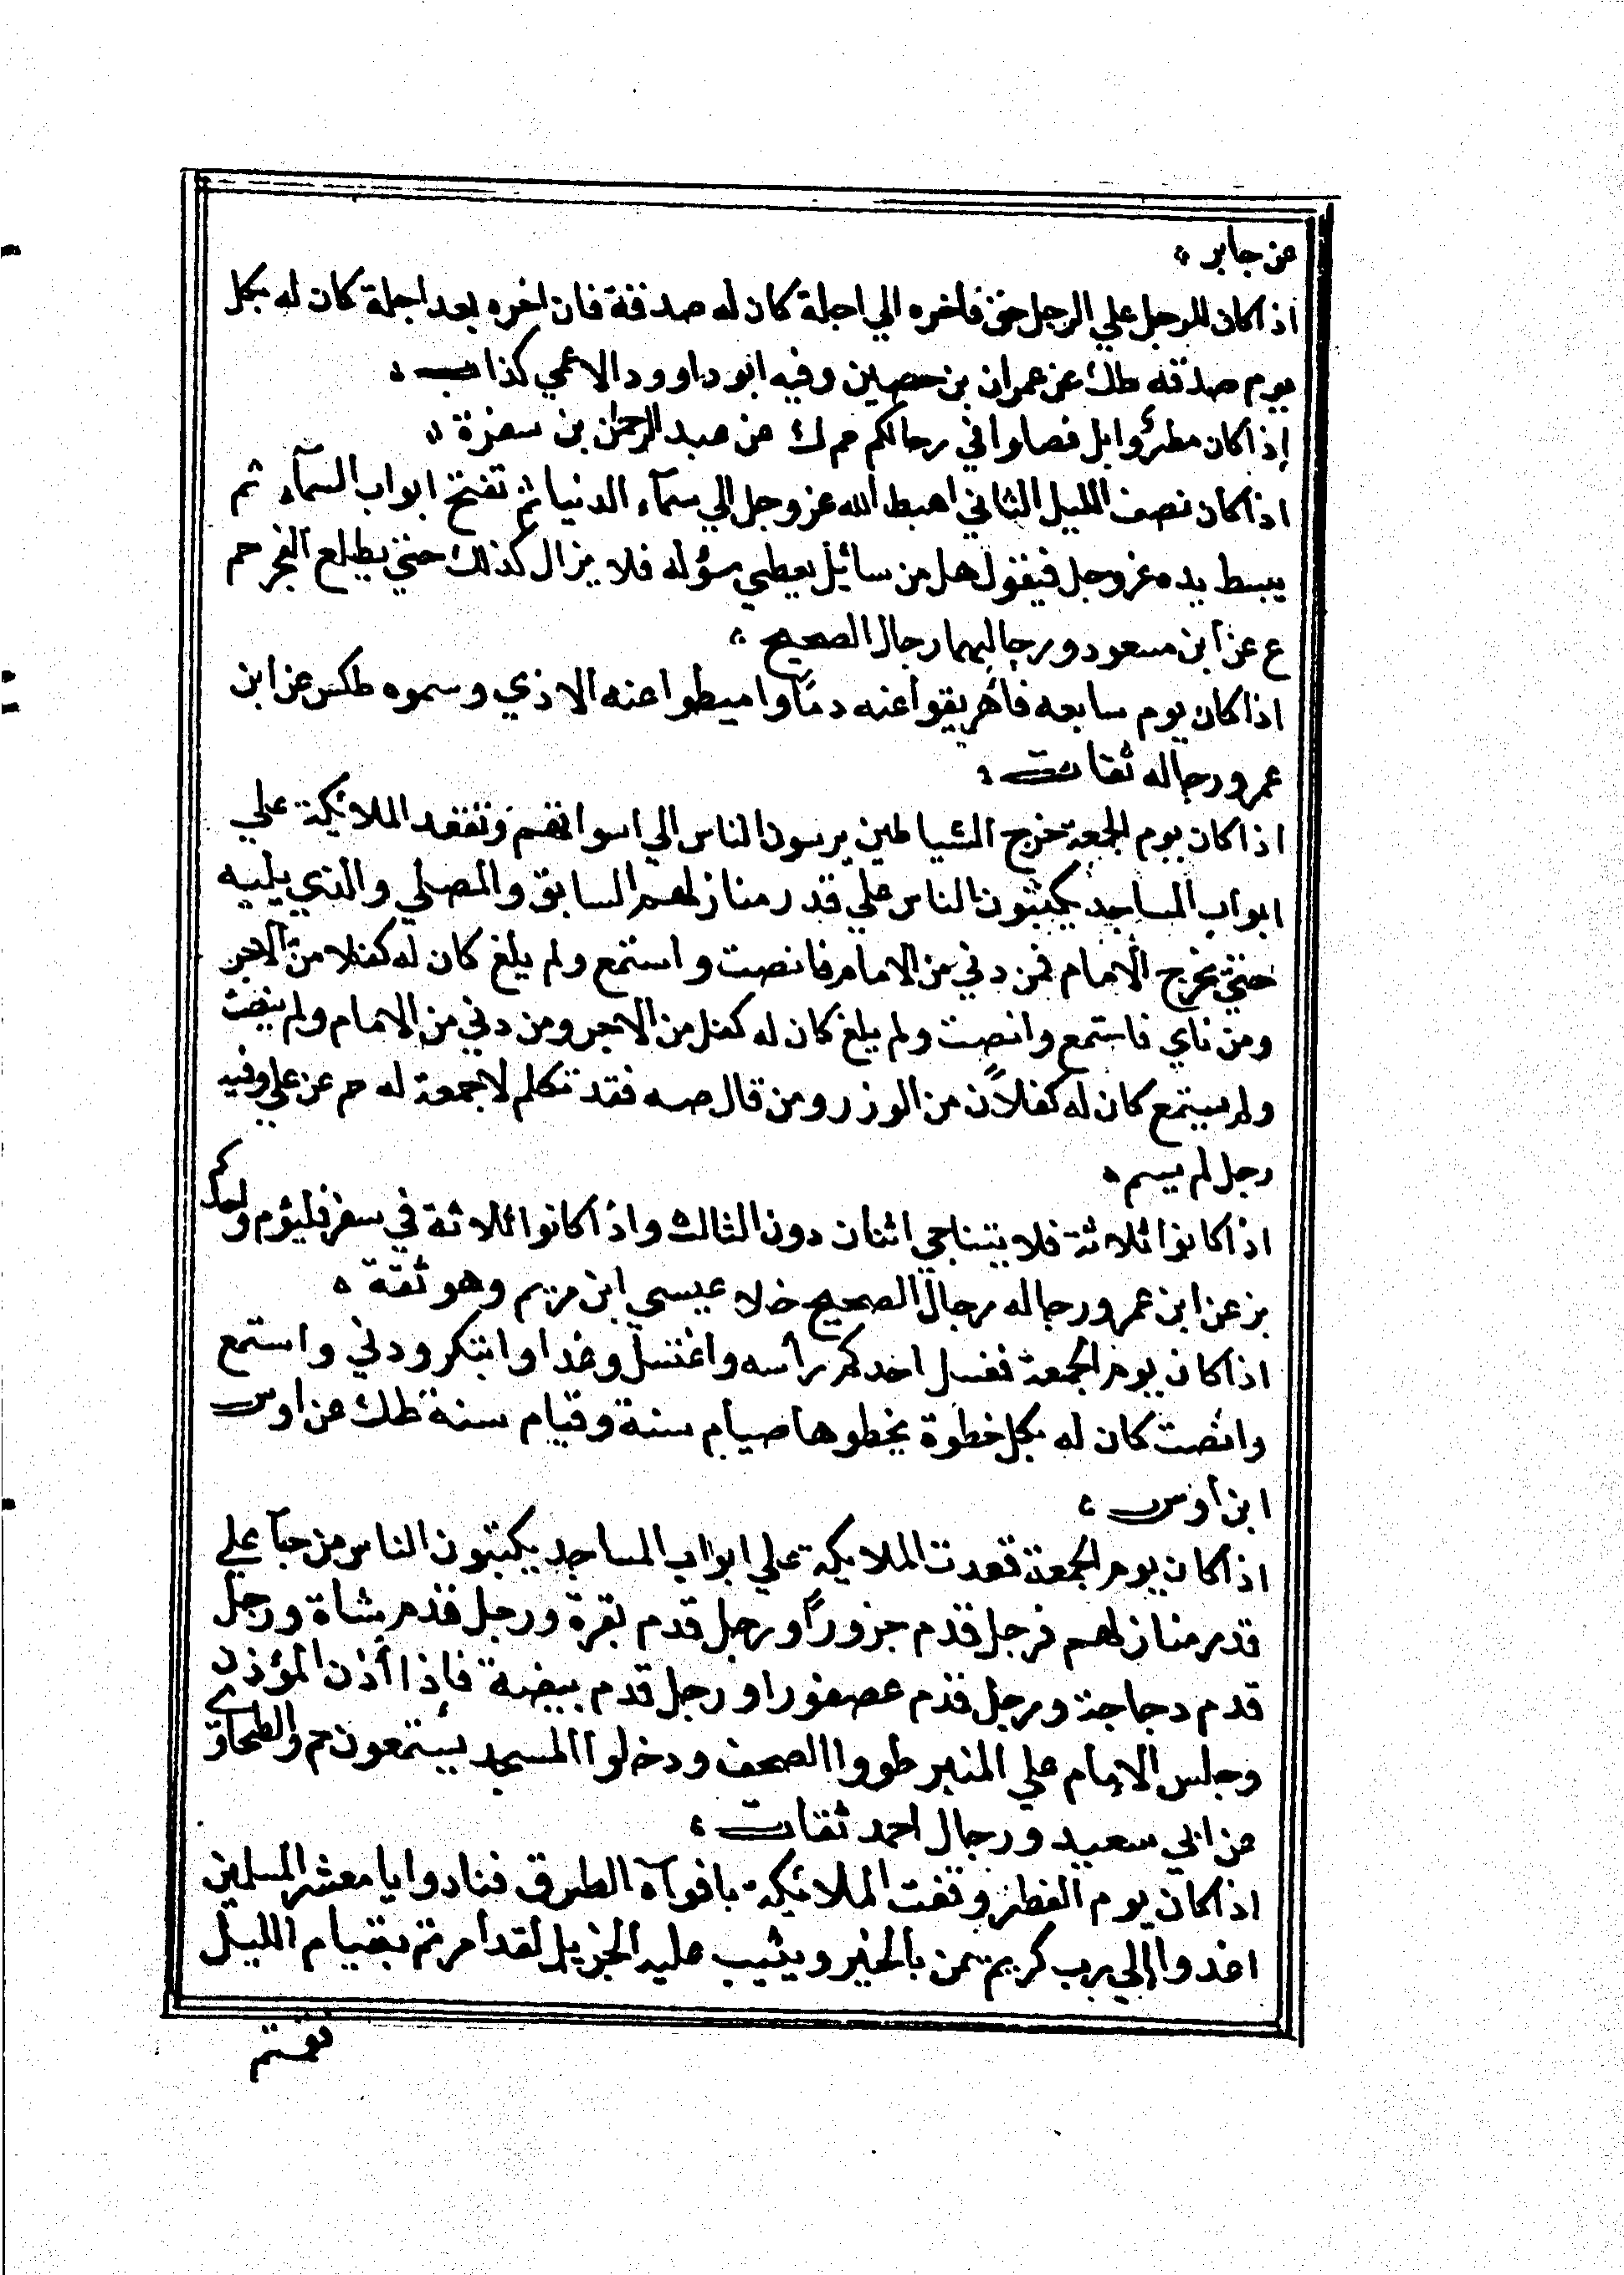 عن جابر ؞
اذا كان للرجل علي الرجل حق فأخره الي اجلة كان له صدقة فان اخره بعد اجلة كان له بكل
يوم صدقة طك عن عمران بن حصين وفيه ابو داوود الاعمي كذاب ؞
إذا كان مطرٌ وابل فصلوا في رحالكم حم ك عن عبد الرحمن بن سمرة ؞
اذا كان نصف الليل الثاني اهبط الله عز وجل الي سمآء الدنيا ثم تفتح ابواب السمآء ثم
يبسط يده عز وجل فيقول هل من سائيل يعطي سؤله فلا يزال كذلك حتي يطلع الفجر حم
ع عن ابن مسعود ورجالهما رجال الصحيح ؞
اذا كان يوم سابعه فأهريقوا عنه دمًا واميطوا عنه الاذي وسموه طكس عن ابن
عمر ورجاله ثقات ؞
اذا كان يوم الجمعة خرج الشياطين يرسون الناس الي اسواقهم وتقعد الملائكة علي
ابواب المساجد يكتبون الناس علي قدر منازلهم السابق والمصلي والذي يليه
حتي يخرج الامام فمن دني من الامام فانصت واستمع ولم يلغ كان له كفلا من الاجر
ومن ناي فاستمع وانصت ولم يلغ كان له كفل من الاجر ومن دني من الامام ولم ينصت
ولم يستمع كان له كفلان من الوزر ومن قال صه فقد تكلم لا جمعة له حم عن علي وفيه
رجل لم يسم ؞
اذا كانوا ثلاثة فلا يتناجي اثنان دون الثالث واذا كانوا ثلاثة في سفر فليؤم واحدكم
بز عن ابن عمر ورجاله رجال الصحيح خلا عيسي ابن مريم وهو ثقة ؞
اذا كان يوم الجمعة فغسل احدكم رأسه واغتسل وغدا وابتكر ودني واستمع
وانصت كان له بكل خطوة يخطوها صيام سنة وقيام سنة طك عن اوس
ابن اوس ؞
اذا كان يوم الجمعة قعدت الملايكة علي ابواب المساجد يكتبون الناس من جآ علي
قدر منازلهم فرجل قدم جزوراً ورجل قدم بقرة ورجل قدم شاة ورجل
قدم دجاجة ورجل قدم عصفورا ورجل قدم بيضة فإذا أذن المؤذن
وجلس الامام علي المنبر طووا الصحف ودخلوا المسجد يستمعون حم والطحاوي
عن ابي سعيد ورجال احمد ثقات ؞
اذا كان يوم الفطر وقفت الملائكة بافوآه الطرق فنادوا يا معشر المسلمين
اغدوا إلي رب كريم يمن بالخير ويثيب عليه الجزيل لقد أمرتم بقيام الليل
فقمتم